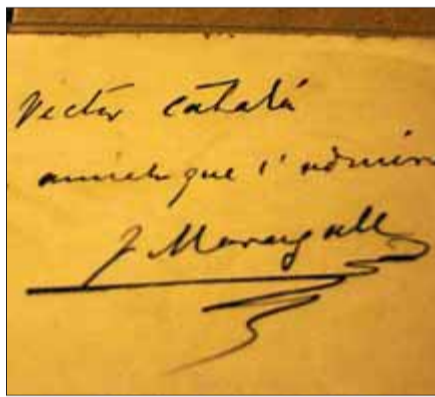 Victor Català
amich que l'admira
J. Maragall